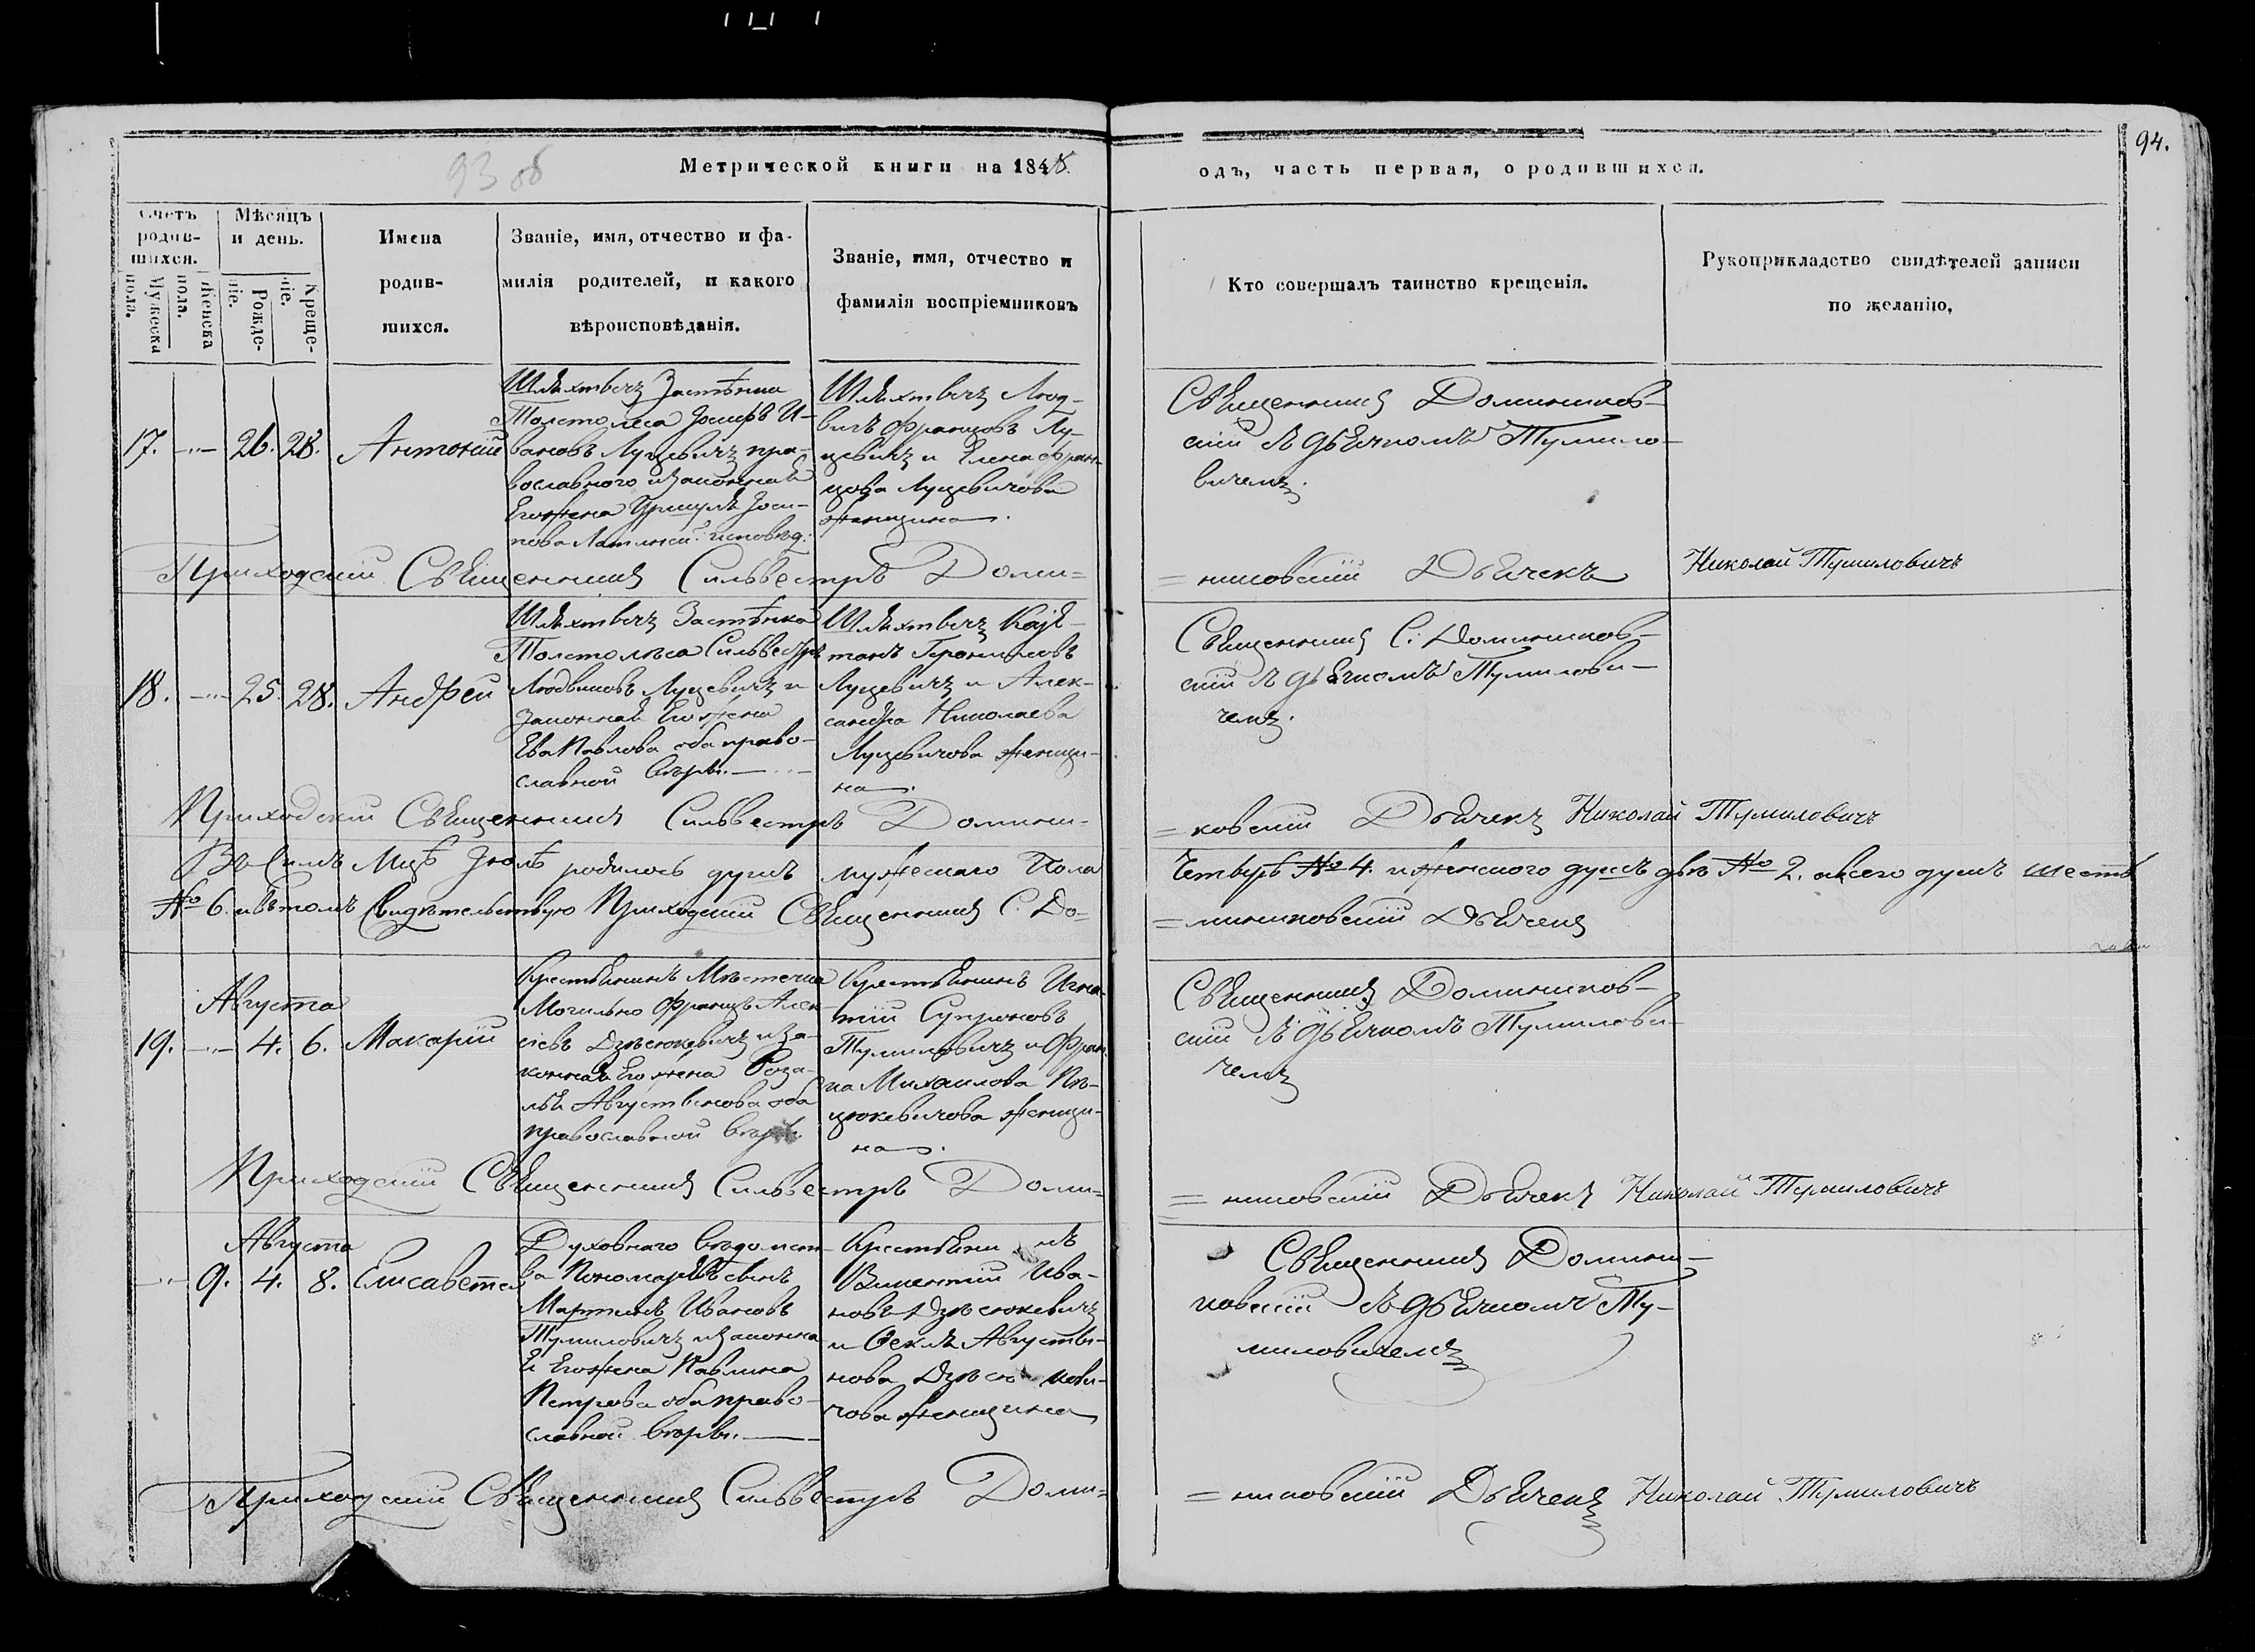 94.
93 об
Метрической книги на 1848
одъ, часть первая, о родившихся.
Счетъ родив-шихся.
Мужеска пола.
Женска пола.
Мѣсяцъ и день.
Рожде-ніе.
Креще-ніе.
Имена
родив-
шихся.
Званіе, имя, отчество и фа-
милія родителей, и какого
вѣроисповѣданія.
Званіе, имя, отчество и
фамилія воспріемниковъ
Кто совершалъ таинство крещенія.
Рукоприкладство свидѣтелей записи
по желанію,
17. 26. 28. Антоній
Шляхтичъ Застѣнка
Толстолеса Іосифъ И-
вановъ Луцевичъ пра-
вославного и законная
Его жена Уршуля Іоси-
пова Латинск. исповѣд.
Шляхтичъ Люд-
вигъ Францовъ Лу-
цевичъ и Елена Фран-
цова Луцевичова
женщина.
Священникъ Домиников-
скій съ дьячкомъ Тумило-
вичемъ.
Приходскій Священникъ Сильвестръ Доми=
=никовскій Дьячекъ Николай Тумиловичъ
18. 25. 28. Андрей
Шляхтичъ Застѣнка
Толстолѣса Сильвестръ
Людвиковъ Луцевичъ и
законная Его жена
Ева Павлова оба право-
славной вѣры.
Шляхтичъ Каје-
танъ Геронимовъ
Луцевичъ и Алек-
сандра Николаева
Луцевичова женщи-
на.
Священникъ С. Домиников-
скій съ дьячкомъ Тумилови-
чемъ.
Приходскій Священникъ Сильвестръ Домини-
=ковскій Дьячекъ Николай Тумиловичъ
Въ Семъ Мцѣ Іюлѣ родилось душъ мужескаго Пола
Четыре № 4. и женского душъ двѣ № 2. а всего душъ шесть
№ 6. и въ томъ Свидѣтельствую Приходскій Священникъ С. До=
=миниковскій Дьячекъ
Августа
19. 4. 6. Макарій
Крестьянинъ Мѣстечка
Могильно Францъ Алек-
сіевъ Дзѣсюкевичъ и за-
конная Его жена Роза-
лія Августинова оба
православной вѣры
Крестьянинъ Игна-
тій Супроновъ
Тумиловичъ и Фран-
ца Михаилова Пѣ-
цюкевичова женщи-
на.
Священникъ Домиников-
скій съ дьячкомъ Тумилови-
чемъ
Приходскій Священникъ Сильвестръ Доми=
=никовскій Дьячекъ Николай Тумиловичъ
Августа
9. 4. 8. Елисавета
Духовнаго вѣдомст-
ва Пономарскій сынъ
Мартинъ Ивановъ
Тумиловичъ и законна-
я Его жена Павлина
Петрова оба право-
славной вѣры.
Крестьянинъ
Викентій Ива-
новъ Дзѣсюкевичъ
и Ѳекла Августи-
нова Дзѣсюкеви-
чова женщина
Священникъ Домини-
ковскій съ дьячкомъ Ту-
миловичемъ
Приходскій Священникъ Сильвестръ Доми=
=никовскій Дьячекъ Николай Тумиловичъ